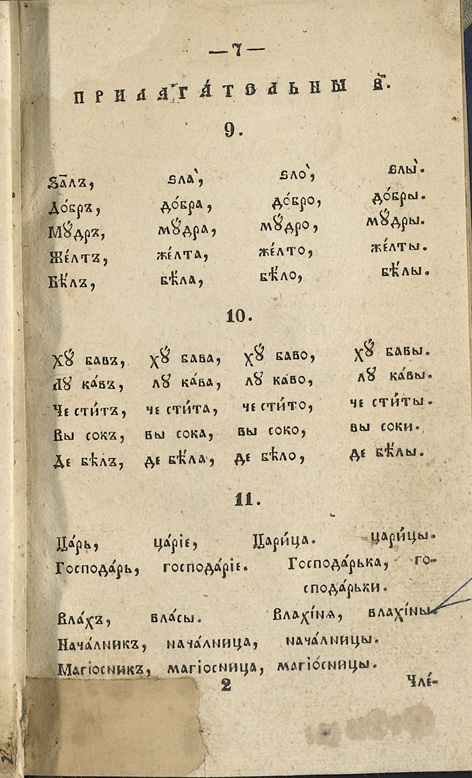 — 7 —
ПРИЛАГА́ТЕЛЬНЫ В҃.
9.
Ѕа̑лъ, ѕла̀, ѕло̀, ѕлы̀.
До́бръ, до́бра, до́бро, до́бры.
Мꙋ́дръ, мꙋ́дра, мꙋ́дро, мꙋ́дры.
Же́лтъ, же́лта, же́лто, же́лты.
Бѣ́лъ, бѣ́ла, бѣ́ло, бѣ́лы.
10.
Хꙋ́ бавъ, хꙋ́ бава, хꙋ́ баво, хꙋ́ бавы.
Лꙋ ка́въ, лꙋ ка́ва, лꙋ ка́во, лꙋ ка́вы.
Че сти́тъ, че сти́та, че сти́то, че сти́ты.
Вы сокъ, вы сока, вы соко, вы соки.
Де бѣ́лъ, де бѣ́ла, де бѣ́ло, де бѣ́лы.
11.
Ца́рь, ца́ріе, Цари́ца. цари́цы.
Господа́рь, господа́ріе. Господа́рька, го-
сподарьки.
Вла́хъ, вла́сы. Влахі́нѧ, влахі́ны.
Нача́лникъ, нача́лница, нача́лницы.
Магіо́сникъ, магіо́сница, магіо́сницы.
2 Чле́-